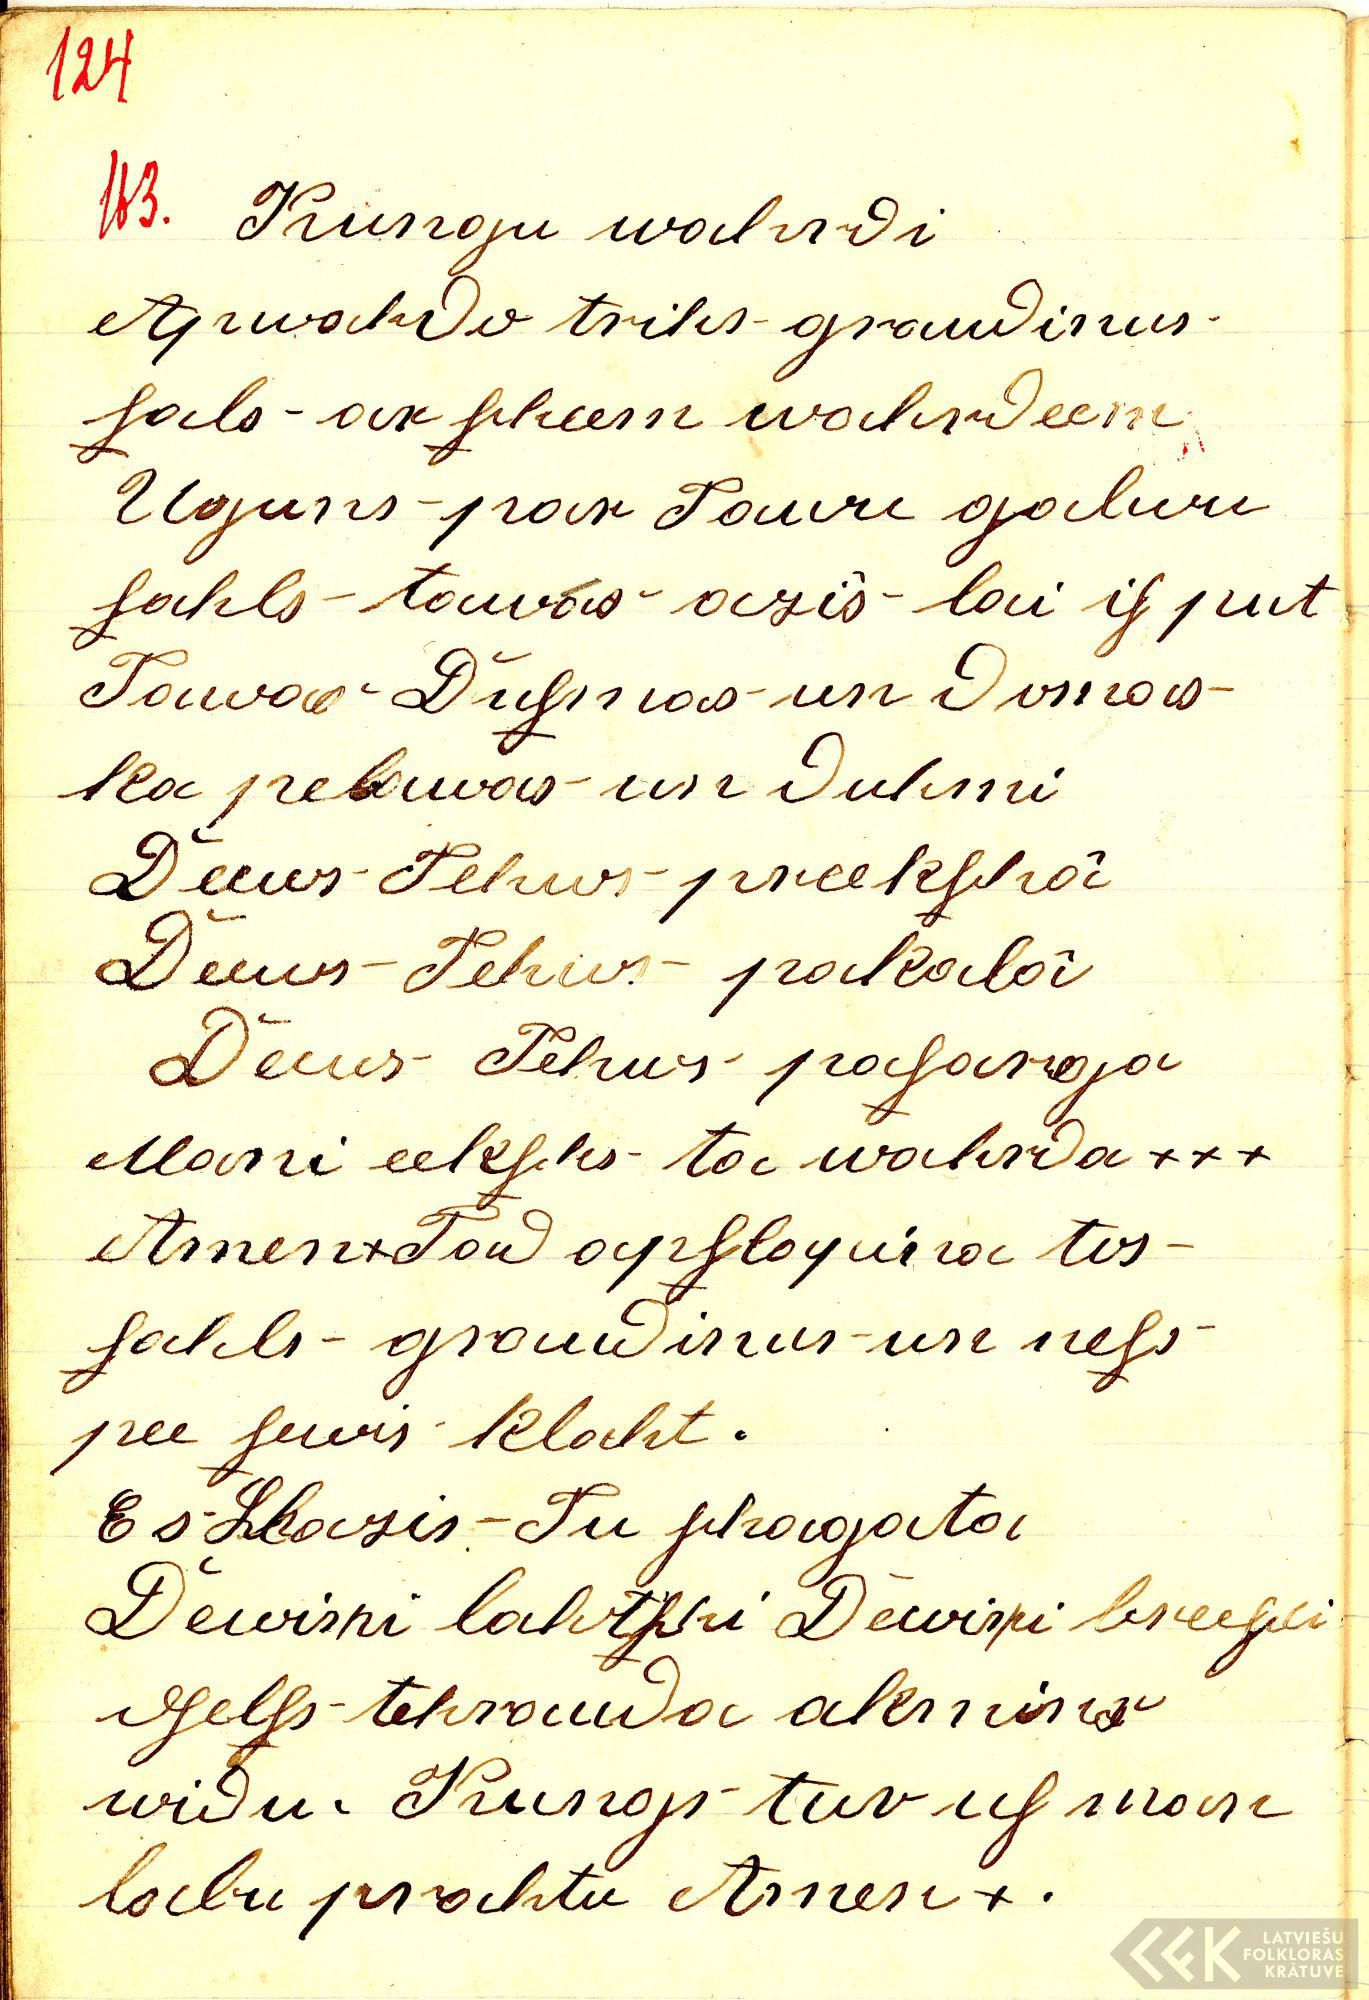 124
163. Kungu wahrdi
Apwahrdo trihs graudinus
ſals ar ſcheem wahrdeem
Uguns par Tawu galwu
ſahls tawās azîs lai iſ put
Tawas Duſmas un domas
ka pelawas un duhmi
Deews Tehws preekſchâ
Deews Tehws pakaļâ
Deews Tehws paſarga
Mani eekſchs ta wahrda + + +
Amen + Tad apſlapina tos
ſahls graudinus un neſs
pee ſewis klaht.
Es Lazis Tu ſchagata
Dewiņi lahtſchi Dewiņi breeſchi
dſelſs tehrauda akmina
widu. Kungs tur uſ man
labu prahtu Amen +.
LATVIEŠU
FOLKLORAS
KRĀTUVE